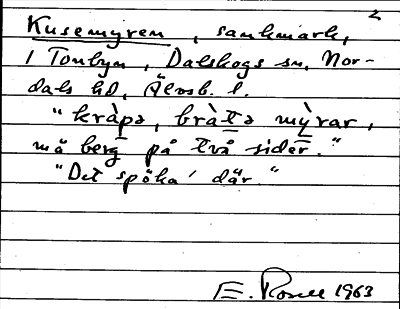 2
Kusemyren, sankmark,
i Tonbyn, Dalskogs sn, Nor-
dals hd, Älvsb. l.
"kràpə, bràtə mỳrar,
mä berg på två sider."
"Det spöka' där."
E. Rosell 1963